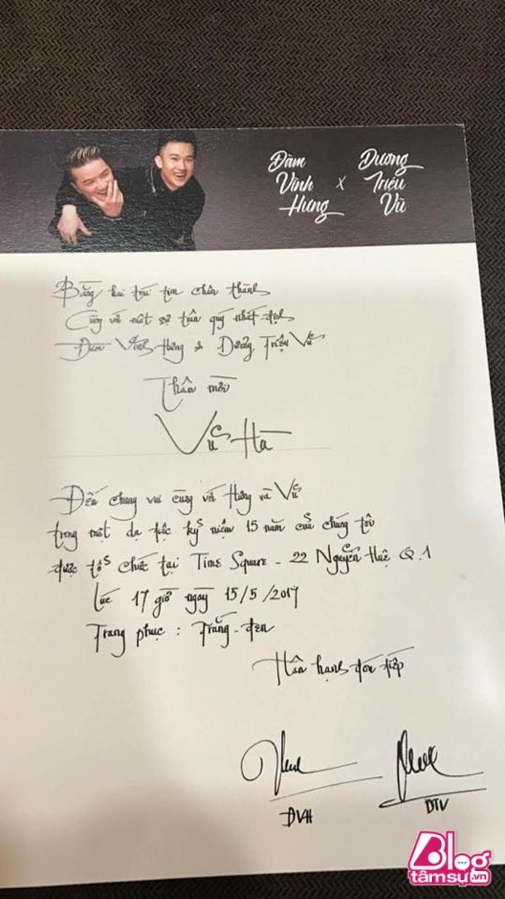 Đàm
Vĩnh
Hưng
x
Dương
Triệu
Vũ
Bằng hai trái tim chân thành
Cùng với một sự trân quý nhất định
Đàm Vĩnh Hưng & Dương Triệu Vũ
Thân mời
Vũ Hà
Đến chung vui cùng với Hưng và Vũ
trong một dạ tiệc kỷ niệm 15 năm của chúng tôi
được tổ chức tại Time Square - 22 Nguyễn Huệ Q.1
Lúc 17 giờ ngày 15/5/2017
Trang phục : Trắng - đen
Hân hạnh đón tiếp
DVH
DTV
Blog
tâmsự.vn